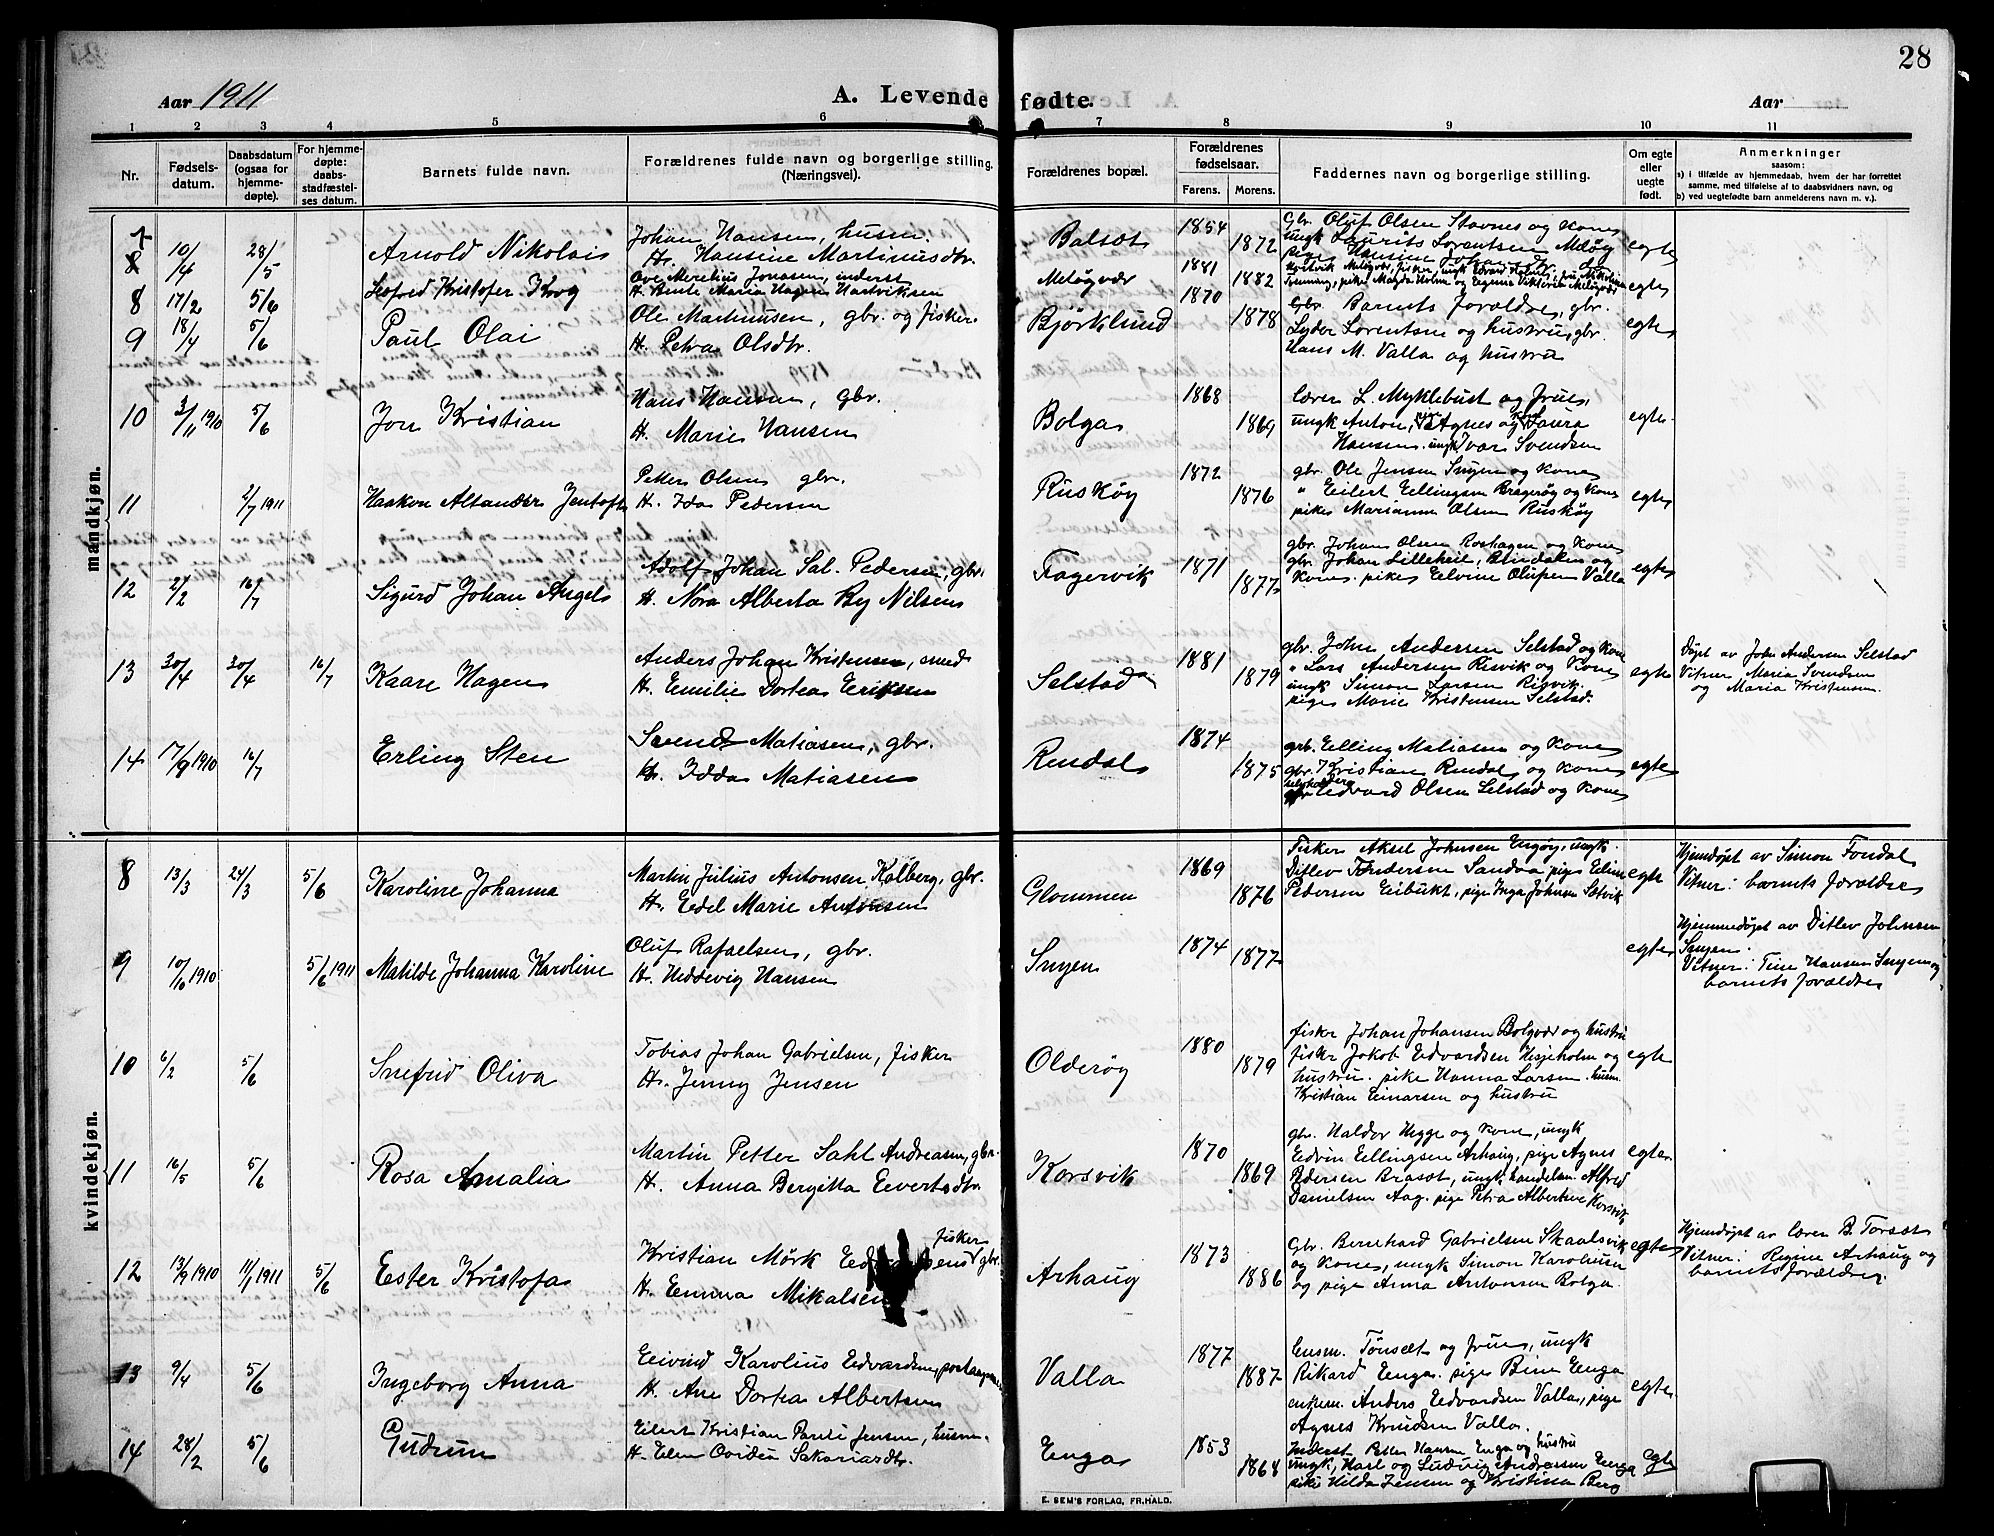 28
Aar 1911
A. Levende fødte.
Aar
1 2 3 4 5 6 7 8 9 10 11
Nr.
Fødsels-
datum.
Daabsdatum
(ogsaa for
hjemme-
døpte).
For hjemme-
døpte:
daabs-
stadfæstel-
ses datum.
Barnets fulde navn.
Forældrenes fulde navn og borgerlige stilling.
(Næringsvei).
Forældrenes bopæl.
Forældrenes
fødselsaar.
Farens. Morens.
Faddernes navn og borgerlige stilling.
Om egte
eller
uegte
født.
Anmerkninger
saasom:
a) i tilfælde av hjemmedaab, hvem der har forrettet
samme, med tilføielse af to daabsvidners navn, og
b) ved uegtefødte barn anmelderens navn m. v.).
mandkjøn.
7
8 10/4 28/5 Arnold Nikolais
Johan Hansen, husm.
H. Hansine Martinusdtr.
Balsøt 1854 1872
Gbr. Oluf Olsen Stavnes og kone
ungk Laurits Lorentsen Meløy
pige Hansine
egte
8 17/2 5/6 Leofred Kristofer Krog
Ove Merelius Jonasen, inderst
H. Bente Maria Hagen Hartviksen
Meløyvær 1881 1882
egte
9 18/4 5/6 Paul Olai
Ole Martinusen, gbr. og fisker.
H. Petra Olsdtr.
Bjørklund 1870 1878
Barnets Forældre, gbr.
Lyder Lorentsen og hustru, gbr.
Hans M. Valla og hustru
egte
10 3/11 1910 5/6 Jon Kristian
Hans Hansen, gbr.
H. Marie Hansen
Bolga 1868 1869
lærer L. Myklebust og frue,
ungk Anton, Agnes og Laura
Hansen. ungk Ivar Svendsen
egte
11 2/7 1911 Haakon Altander Jentoft
Petter Olsen gbr.
H. Ida Pedersen
Ruskøy 1872 1876
gbr. Ole Jensen Sneyen og kone
" Eilert Ellingsen Bragerøy og kone
pike Marianne Olsen Ruskøy
egte
12 2/2 16/7 Sigurd Johan Angel
Adolf Johan Sal. Pedersen, gbr.
H. Nora Alberta By Nilsen
Fagervik 1871 1877
gbr. Johan Olsen Roshagen og kone
gbr. Johan Lillekeil, Bindalen og
kone. pike Elvine Olufsen Valla
egte
13 30/4 30/4 16/7 Kaare Hagen
Anders Johan Kristensen, smed
H. Emilie Dortea Eriksen
Selstad 1881 1879
gbr. John Andersen Selstad og kone
" Lars Andersen Risvik og kone
ungk Simon Larsen Risvik
pige Marie Kristensen Selstad.
egte
Døpt av John Andersen Selstad
Vitner Maria Svendsen
og Maria Kristensen.
14 17/9 1910 16/7 Erling Sten
Svend Matiasen, gbr.
H. Idda Matiasen
Rendal 1874 1875
grb. Elling Matiasen og kone
gbr. Kristian Rendal og kone
Edvard Olsen Selstad og kone
egte
kvindekjøn.
8 13/3 24/3 5/6 Karoline Johanna
Martin Julius Antonsen Kalberg, gbr.
H. Edel Marie Antonsen
Glommen 1869 1876
Fisker Aksel Johnsen Engøy, ungk.
Ditlev Andersen Sandvaa pige Eline
Pedersen Eibukt, pige Inga Johnsen Selvik
egte
Hjemdøpt av Simon Fondal
Vitner: barnets forældre
9 10/10 1910 5/6 1911 Matilde Johanna Karoline
Oluf Rafaelsen, gbr.
H. Heddevig Hansen
Sneyen 1874 1877
egte
Hjemmedøpt av Ditlev Johnsen
Sneyen.
Vitner: Tine Hansen Sneyen og
barnets forældre
10 6/2 5/6 Snefrid Oliva
Tobias Johan Gabrielsen, fisker
H. Jenny Jensen
Olderøy 1880 1879
fisker Johan Johansen Bolgvær og hustru
fisker Jakob Edvardsen Hesjeholm og
hustru. pike Hanna Larsen. husm.
Kristian Einarsen og hustru
egte
11 16/5 5/6 Rosa Amalia
Martin Petter Sahl Andreasen, gbr.
H. Anna Bergitta Evertsdtr.
Korsvik 1870 1869
gbr. Haldor Hegge og kone, ungk
Edvin Ellingsen Arhaug, pige Agnes
Pedersen Brasøt, ungk. handelsm. Alfred
Danielsen Aag. pige Petra Albertine Korsvik
egte
12 13/9 1910 11/1 1911 5/6 Ester Kristofa
fisker
Kristian Mørk gbr.
H. Emma Mikalsen
Arhaug 1873 1886
Gbr. Bernhard Gabrielsen Skaalsvik
og kone, ungk Simon Karolius
og pige Anna Antonsen Bolga.
egte
Hjemdøpt av lærer B. Torsøt
Vitner: Regine Arhaug og
barnets forældre.
13 9/4 5/6 Ingeborg Anna
Eivind Karolius Edvardsen,
H. Ane Dortea Albertsen
Valla 1877 1887
Tønset og frue, ungk
Rikard Enga. pige Bine Enga
Anders Edvardsen Valla, pige
Agnes Knudsen Valla.
egte
14 28/2 5/6 Gudrun
Eilert Kristian Pareli Jensen, husm.
H. Elen Ovidia Sakariasdtr.
Enga 1853 1868
Inderst Petter Hansen Enga og hustru
ungk, Karl og Ludvig Andersen Enga
pike Hilda Jensen og Kristina Berg
egte
E. SEM'S FORLAG, FR.HALD.